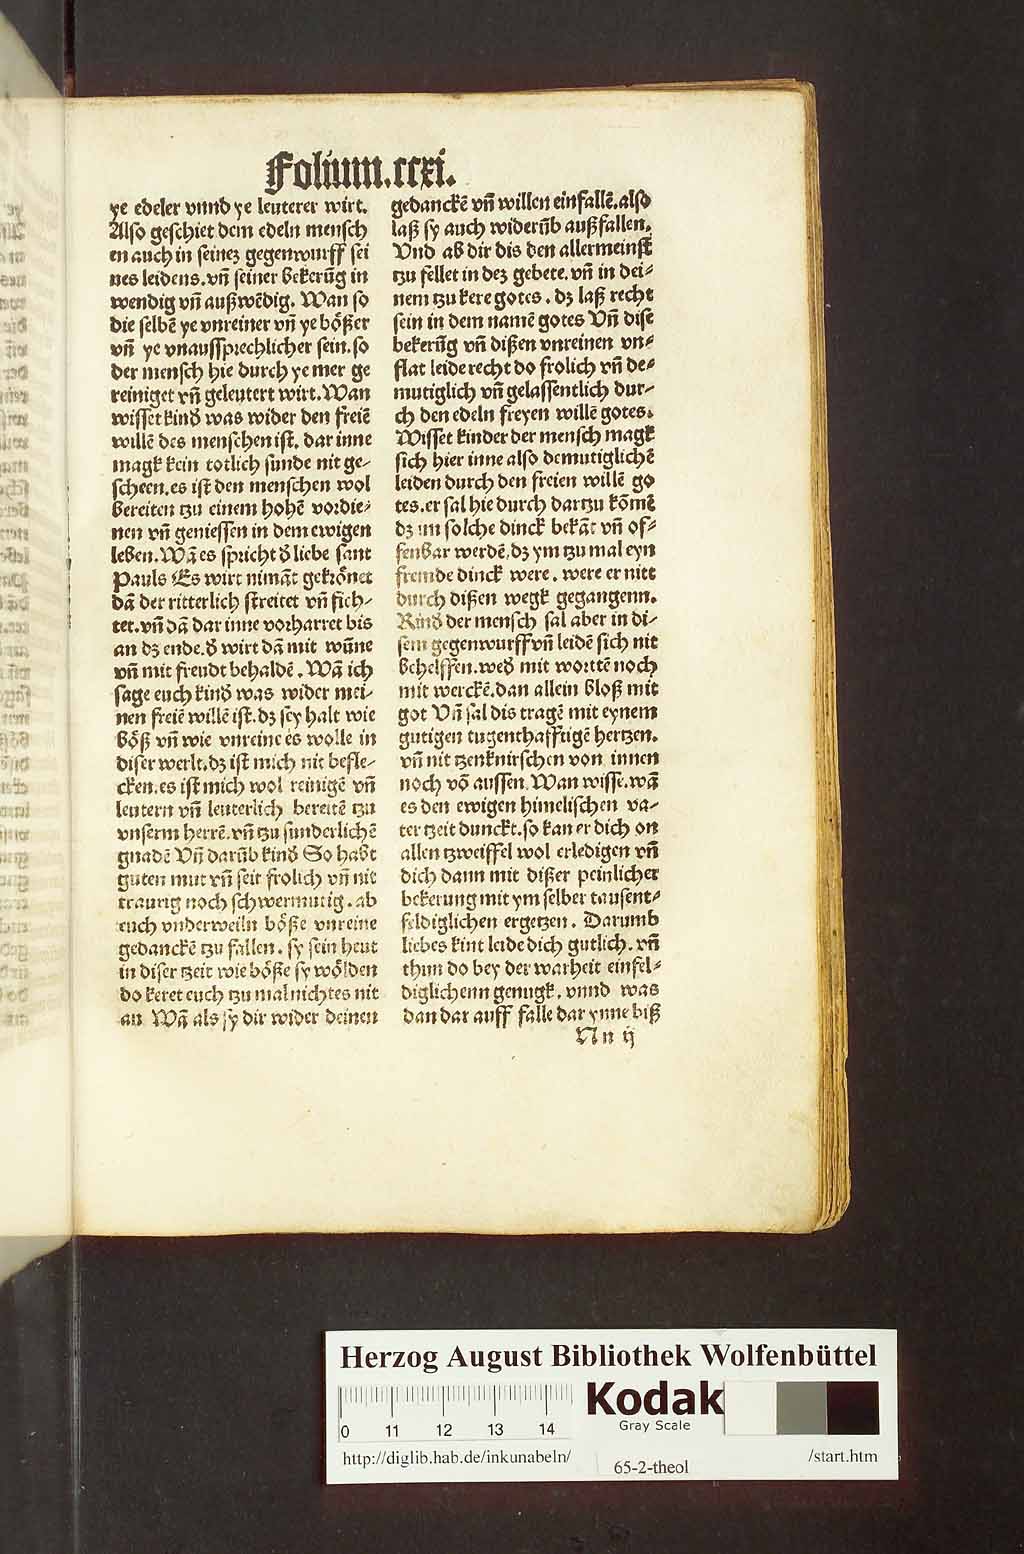 Folium.ccxi.
ye edeler vnnd ye leuterer wirt.
Also geschiet dem edeln mensch
en auch in seinez gegenwurff sei
nes leidens. vn̄ seiner bekerūg in
wendig vn̄ außwēdig. Wan so
die selbē ye vnreiner vn̄ ye bößer
vn̄ ye vnaussprechlicher sein. so
der mensch hie durch ye mer ge
reiniget vn̄ geleutert wirt. Wan
wisset kind was wider den freiē
willē des menschen ist. dar inne
magk kein totlich sunde nit ge⸗
scheen. es ist den menschen wol
bereiten tzu einem hohē vordie⸗
nen vn̄ geniessen in dem ewigen
leben. Wā es spricht d̕ liebe sant
Pauls Es wirt nimāt gekrönet
dā der ritterlich streitet vn̄ fich⸗
tet. vn̄ dā dar inne vorharret bis
an dz ende. d̕ wirt dā mit wūne
vn̄ mit freudt behaldē. Wā ich
sage euch kind was wider mei⸗
nen freiē willē ist. dz sey halt wie
böß vn̄ wie vnreine es wolle in
diser werlt. dz ist mich nit befle⸗
cken. es ist mich wol reinigē vn̄
leutern vn̄ leuterlich bereitē tzu
vnserm herrē. vn̄ tzu sunderlichē
gnadē Vn̄ darūb kind So habt
guten mut vn̄ seit frolich vn̄ nit
traurig noch schwermutig. ab
euch vnderweiln böße vnreine
gedanckē tzu fallen. sy sein heut
in diser tzeit wie böße sy wölden
do keret euch tzu mal nichtes nit
an Wā als sy dir wider deinen
gedanckē vn̄ willen einfallē. also
laß sy auch widerūb außfallen.
Vnd ab dir dis den allermeinst
tzu fellet in dez gebete. vn̄ in dei⸗
nem tzu kere gotes. dz laß recht
sein in dem namē gotes Vn̄ dise
bekerūg vn̄ dißen vnreinen vn⸗
flat leide recht do frolich vn̄ de⸗
mutiglich vn̄ gelassentlich dur⸗
ch den edeln freyen willē gotes.
Wisset kinder der mensch magk
sich hier inne also demutiglichē
leiden durch den freien willē go
tes. er sal hie durch dar tzu kōmē
dz im solche dinck bekāt vn̄ of⸗
fenbar werdē, dz ym tzu mal eyn
fremde dinck were. were er nitt
durch dißen wegk gegangenn.
Kind der mensch sal aber in di⸗
sem gegenwurff vn̄ leidē sich nit
behelffen. wed̕ mit wortē noch
mit werckē. dan allein bloß mit
got Vn̄ sal dis tragē mit eynem
gutigen tugenthafftigē hertzen.
vn̄ nit tzenknirschen von innen
noch vō aussen. Wan wisse. wā
es den ewigen himelischen va⸗
ter tzeit dunckt. so kan er dich on
allen tzweiffel wol erledigen vn̄
dich dann mit dißer peinlicher
bekerung mit ym selber tausent⸗
feldiglichen ergetzen. Darumb
liebes kint leide dich gutlich. vn̄
thun do bey der warheit einfel⸗
diglichenn genugk. vnnd was
dan dar auff falle dar ynne biß
Nn ij
Herzog August Bibliothek Wolfenbüttel
0 11 12 13 14
Kodak
Gray Scale
http://diglib.hab.de/inkunabeln/
65-2-theol
/start.htm